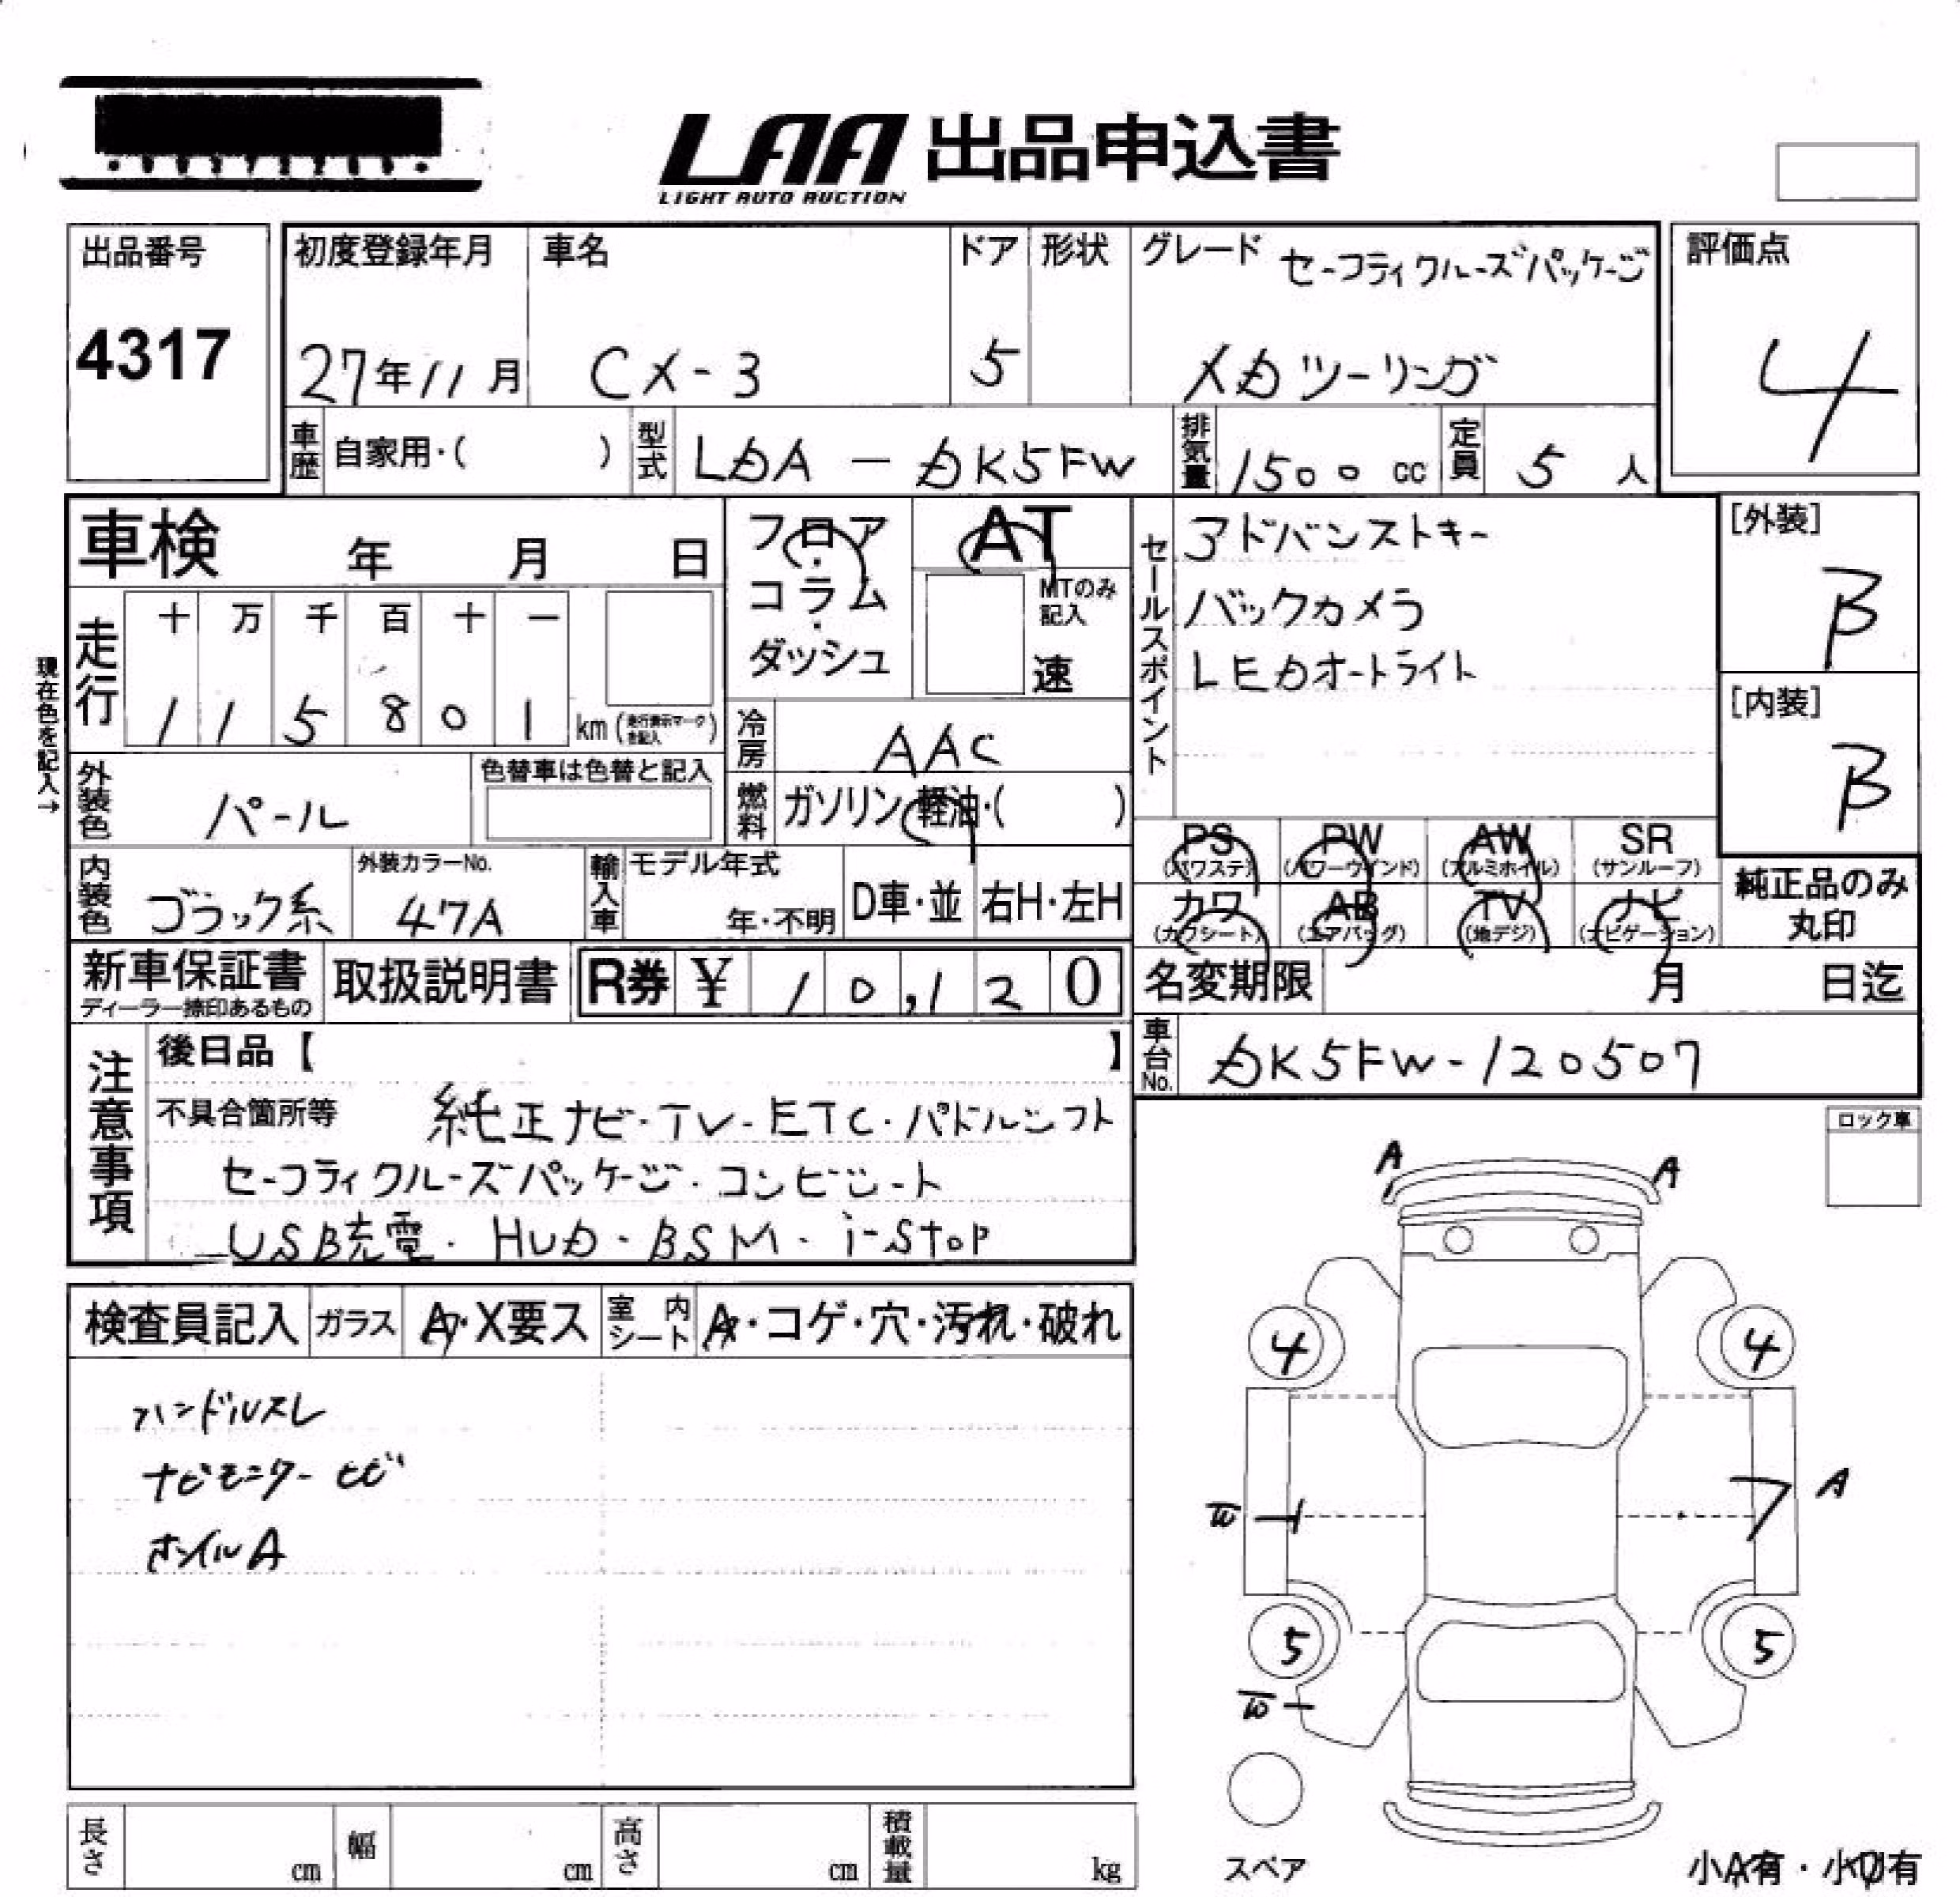 LAA 出品申込書
LIGHT AUTO AUCTION
出品番号
4317
初度登録年月
27年11月
車名
CX-3
ドア
5
形状
グレード セーフティクルーズパッケージ
XDツーリング
評価点
4
車歴 自家用・( )
型式 LDA-DK5FW
排気量 1500 cc
定員 5 人
車検 年 月 日
フロア・コラム・ダッシュ
AT
MTのみ記入
速
セールスポイント
アドバンストキー
バックカメラ
LEDオートライト
[外装]
B
[内装]
B
現在色を記入→
走行
十 万 千 百 十 一
1 1 5 8 0 1 km (走行表示マークを記入)
冷房 AAC
外装色 パール
色替車は色替と記入
燃料 ガソリン・軽油・( )
内装色 ブラック系
外装カラーNo.
47A
輸入車 モデル年式
年・不明
D車・並 右H・左H
PS (パワステ) PW (パワーウインド) AW (アルミホイル) SR (サンルーフ)
カワ (カワシート) AB (エアバッグ) TV (地デジ) ナビ (ナビゲーション)
純正品のみ丸印
新車保証書
ディーラー捺印あるもの
取扱説明書
R券 ¥ 10,120
名変期限 月 日迄
車台No. DK5FW-120507
注意事項
後日品【 】
不具合箇所等 純正ナビ・TV・ETC・パドルシフト
セーフティクルーズパッケージ・コンビシート
USB充電・HUD・BSM・i-stop
ロック車
検査員記入 ガラス A・X要ス 室内シート A・コゲ・穴・汚れ・破れ
ハンドルスレ
ナビモニターヒビ
ホイルA
A A
4 4
W A
5 5
W
スペア
小A有・小U有
長さ cm 幅 cm 高さ cm 積載量 kg